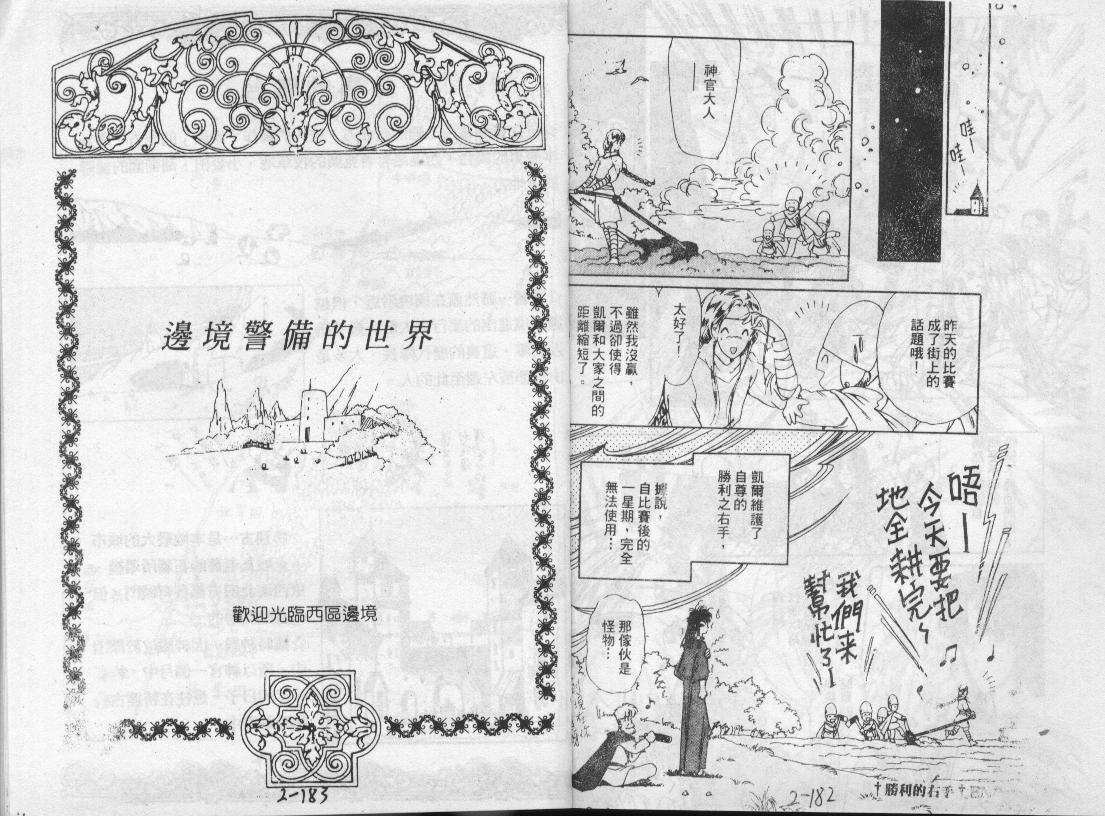 哇—
哇—
神官大人
——
昨天的比賽
成了街上的
話題哦！
太好了！
雖然我沒贏，
不過卻使得
凱爾和大家之間的
距離縮短了。
唔—
今天要把
地全耕完～
我們来
幫忙了—
凱爾維護了
自尊的
勝利之右手，
據說，
自比賽後的
一星期，完全
無法使用…
那傢伙是
怪物…
†勝利的右手†
2-182
邊境警備的世界
歡迎光臨西區邊境
2-183